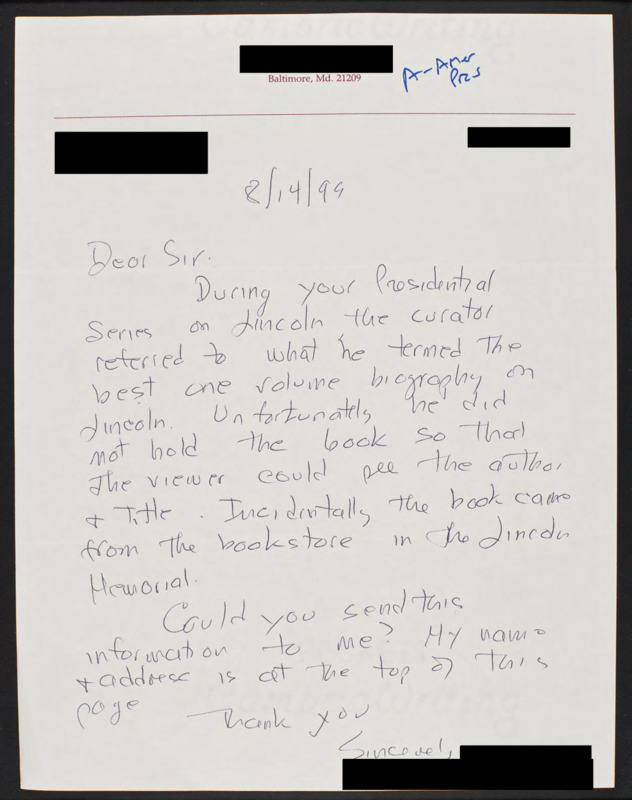 Baltimore, Md. 21209
A-Amer
Pres
8/14/99
Dear Sir.
During your Presidential
Series on Lincoln, the curator
referred to what he termed the
best one volume biography on
Lincoln. Unfortunately he did
not hold the book so that
the viewer could see the author
+ Title. Incidentally the book came
from the bookstore in the Lincoln
Memorial.
Could you send this
information to me? My name
+ address is at the top of this
page
Thank you
Sincerely,